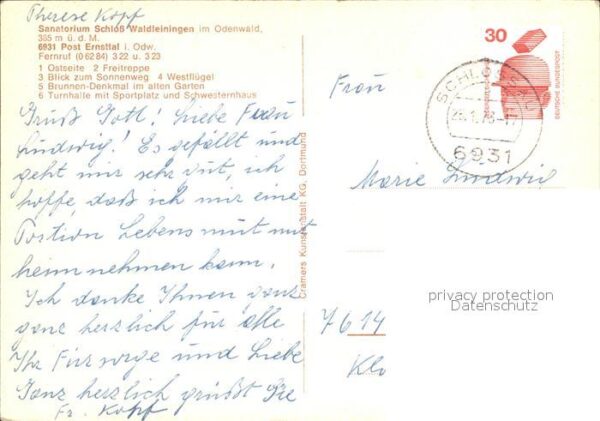 Therese Kopf
Sanatorium Schloß Waldleiningen im Odenwald,
365 m ü. d. M.
6931 Post Ernsttal i. Odw.
Fernruf (0 62 84) 3 22 u. 3 23
1 Ostseite 2 Freitreppe
3 Blick zum Sonnenweg 4 Westflügel
5 Brunnen-Denkmal im alten Garten
6 Turnhalle mit Sportplatz und Schwesternhaus
Grüß Gott! Liebe Frau
Ludwig! Es gefällt und
geht mir sehr gut, ich
hoffe, daß ich mir eine
Portion Lebensmut mit
heim nehmen kann.
Ich danke Ihnen ganz
ganz herzlich für alle
Ihr Fürsorge und Liebe
Ganz herzlich grüßt Sie
Fr. Kopf
Cramers Kunstanstalt KG, Dortmund
30
DEUTSCHE BUNDESPOST
SCHLOSSAU
6931
Frau
Marie Ludwig
7614
privacy protection
Datenschutz